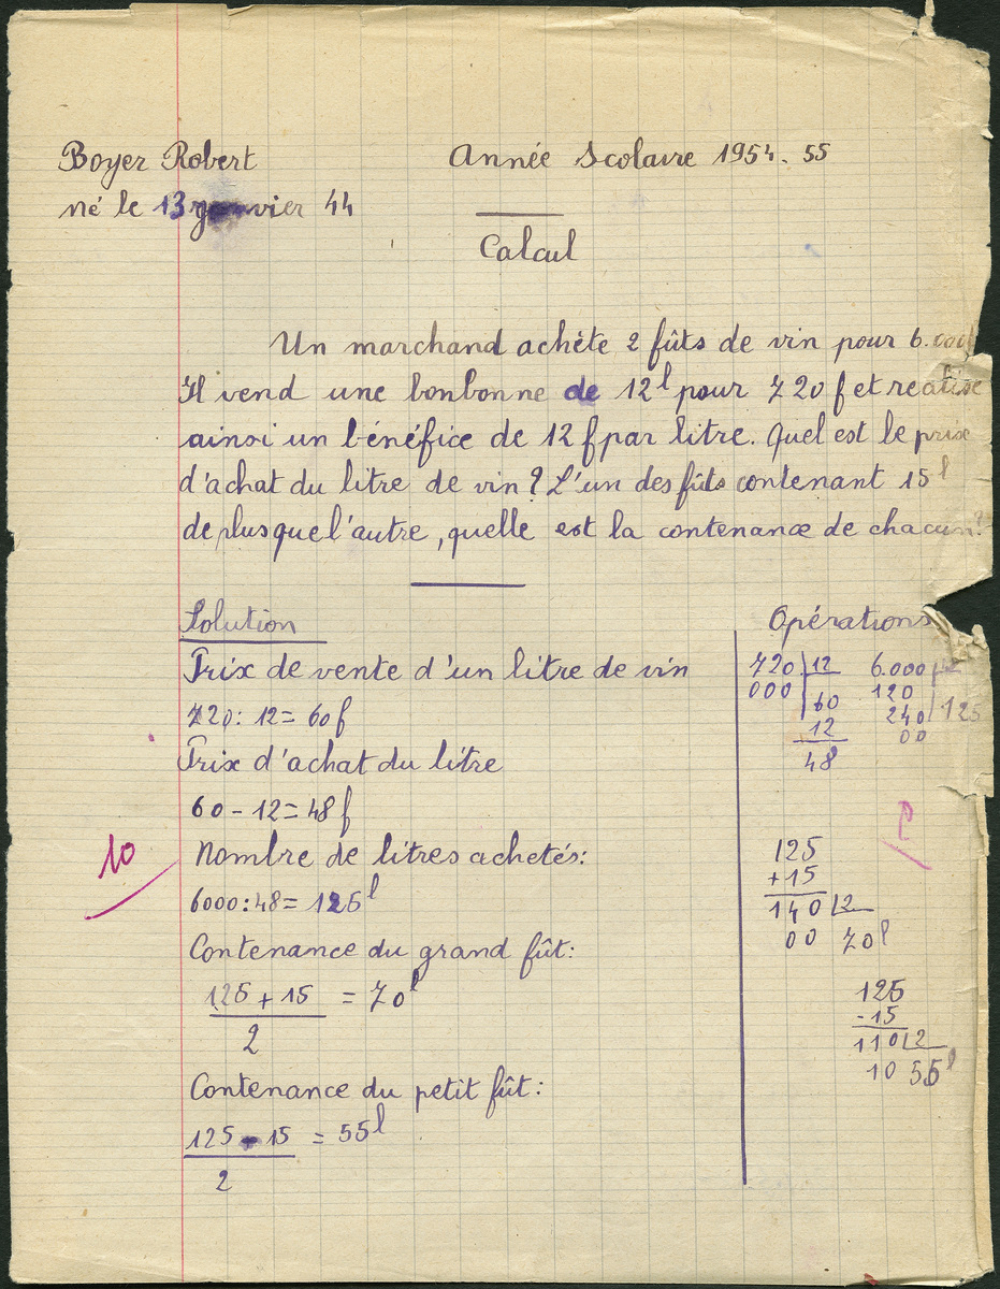 Boyer Robert
Année Scolaire 1954. 55
né le 13 janvier 44
Calcul
Un marchand achète 2 fûts de vin pour 6.000f
Il vend une bonbonne de 12l pour 720f et réalise
ainsi un bénéfice de 12f par litre. Quel est le prix
d'achat du litre de vin? L'un des fûts contenant 15l
de plus que l'autre, quelle est la contenance de chacun?
Solution
Prix de vente d'un litre de vin
720: 12= 60f
Prix d'achat du litre
60 - 12 = 48f
Nombre de litres achetés:
6000:48= 125l
Contenance du grand fût:
125 + 15 = 70l
2
Contenance du petit fût:
125 - 15 = 55l
2
10
Opérations
720 12 6.000
000 60 120
12 240 125
48 00
125
+15
140 2
00 70l
125
-15
110 2
10 55l